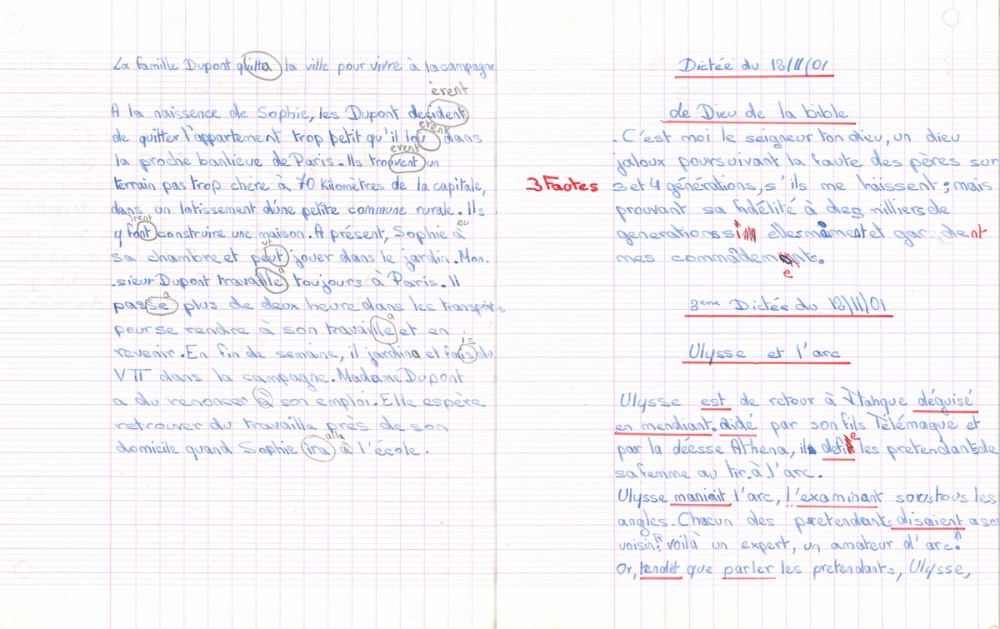 La famille Dupont quitta la ville pour vivre à la campagne
èrent
A la naissance de Sophie, les Dupont decident
erent
de quitter l'appartement trop petit qu'il dans
erent
la proche banlieue de Paris. Ils trouvent un
terrain pas trop chère à 70 Kilomètres de la capitale,
dans un lotissement d'une petite commune rurale. Ils
irent eu
y font construire une maison. A présent, Sophie a
ut
sa chambre et peut jouer dans le jardin. Mon-
a
sieur Dupont travaille toujours à Paris. Il
a
passe plus de deux heure dans les transports
a
pour se rendre à son travaille et en
is
revenir. En fin de semaine, il jardina et fais du
VTT dans la campagne. Madame Dupont
a du renoncer à son emploi. Elle espère
retrouver du travaille près de son
alla
domicile quand Sophie ira à l'école.
Dictée du 18/11/01
de Dieu de la bible
C'est moi le seigneur ton dieu, un dieu
jaloux poursuivant la faute des pères sur
3 Fautes
3 et 4 générations, s'ils me haïssent; mais
prouvant sa fidélité à des milliers de
generations si elles m'aiment et gardent
mes commâdements.
e
3eme Dictée du 18/11/01
Ulysse et l'arc
Ulysse est de retour à Ithaque déguisé
en mendiant. aidé par son fils Télémaque et
par la déesse Athena, il defie les pretendants de
sa femme au tir à l'arc.
Ulysse maniait l'arc, l'examinant sous tous les
angles. Chacun des pretendants disaient a son
voisin: "voilà un expert, un amateur d'arc."
Or, tendit que parler les pretendants, Ulysse,